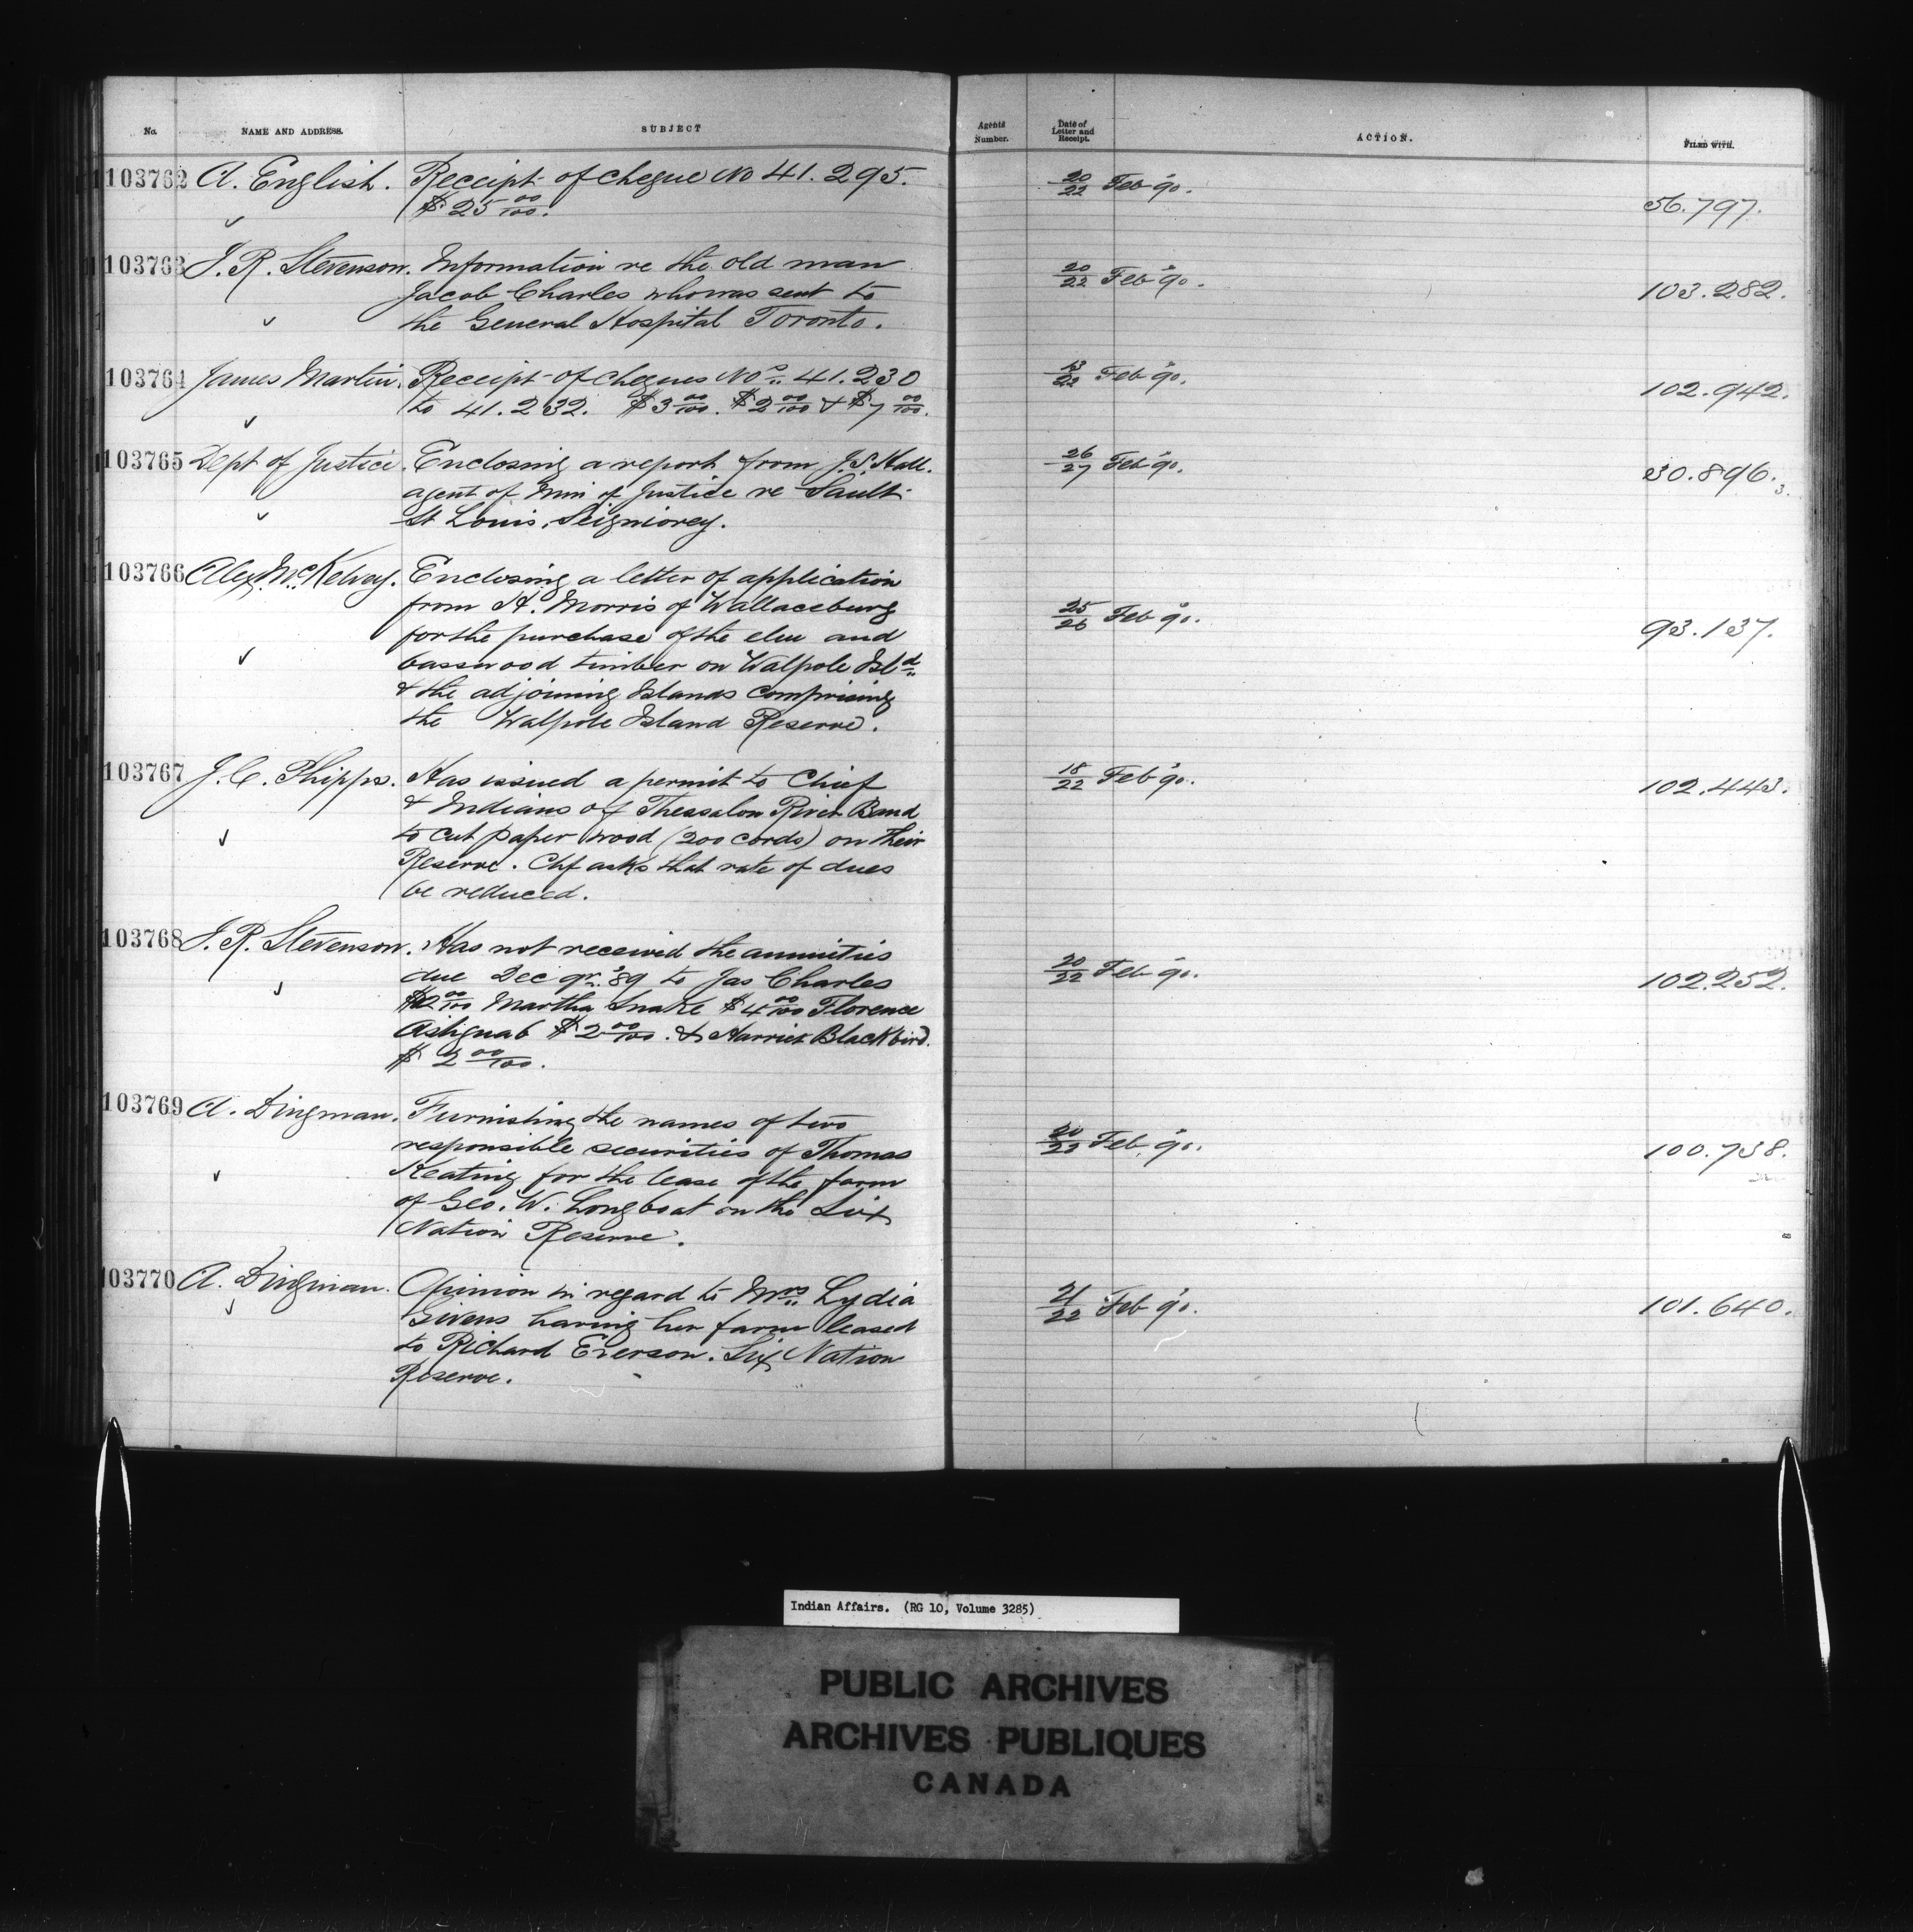 No. NAME AND ADDRESS. SUBJECT Agents Number. Date of Letter and Receipt. ACTION. FILED WITH.
103762 A. English. Receipt of cheque No 41.295. 20/22 Feb '90.
$25 00/100. 56.797.
103763 J. R. Stevenson. Information re the old man 20/22 Feb '90.
Jacob Charles who was sent to 103.282.
the General Hospital Toronto.
103764 James Martin. Receipt of cheques Nos. 41.230 13/22 Feb '90.
to 41.232. $3 00/100. $2 00/100 & $7 00/100. 102.942.
103765 Dept of Justice. Enclosing a report from J. S. Hall. 26/27 Feb '90.
agent of Min of Justice re Sault 30.896.3.
St Louis, Seigniorey.
103766 Alex. McKelvey. Enclosing a letter of application
from H. Morris of Wallaceburg 25/26 Feb '90.
for the purchase of the elm and 93.137.
basswood timber on Walpole Isld.
& the adjoining Islands comprising
the Walpole Island Reserve.
103767 J. C. Phipps. Has issued a permit to Chief 18/22 Feb '90.
& Indians of Thessalon River Band 102.443.
to cut paper wood (200 cords) on their
Reserve. Chf asks that rate of dues
be reduced.
103768 J. R. Stevenson. Has not received the annuities
due Dec qr. '89 to Jas Charles 20/22 Feb '90.
$2 00/100 Martha Snake $4 00/100 Florence 102.252.
$2 00/100. & Harriet Blackbird.
$2 00/100.
103769 A. Dingman. Furnishing the names of two
responsible securities of Thomas 20/22 Feb '90.
Keating for the lease of the farm 100.738.
of Geo. W. Longboat on the Six
Nation Reserve.
103770 A. Dingman. Opinion in regard to Mrs. Lydia 21/22 Feb '90.
Givens having her farm leased 101.640.
to Richard Everson. Six Nation
Reserve.
Indian Affairs. (RG 10, Volume 3285)
PUBLIC ARCHIVES
ARCHIVES PUBLIQUES
CANADA